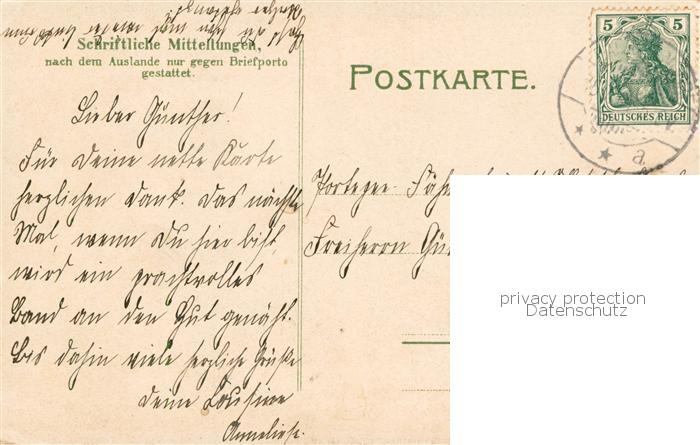 Schriftliche Mitteilungen,
nach dem Auslande nur gegen Briefporto
gestattet.
POSTKARTE.
5 5
DEUTSCHES REICH
a
Lieber Günther!
Für Deine nette Karte
herzlichen Dank. Das nächste
Mal, wenn Du hier bist,
wird ein prachtvolles
Band an den Hut genäht.
Bis dahin viele herzliche Grüße
Deine Cousine
Anneliese.
Portepee-
Freiherrn
privacy protection
Datenschutz